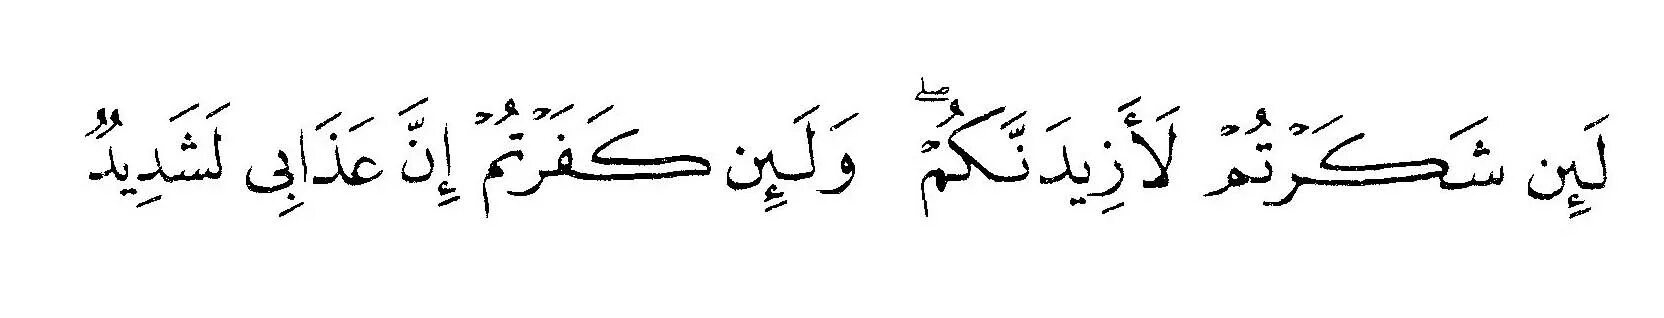 لَئِن شَكَرْتُمْ لَأَزِيدَنَّكُمْ ۖ وَلَئِن كَفَرْتُمْ إِنَّ عَذَابِى لَشَدِيدٌ